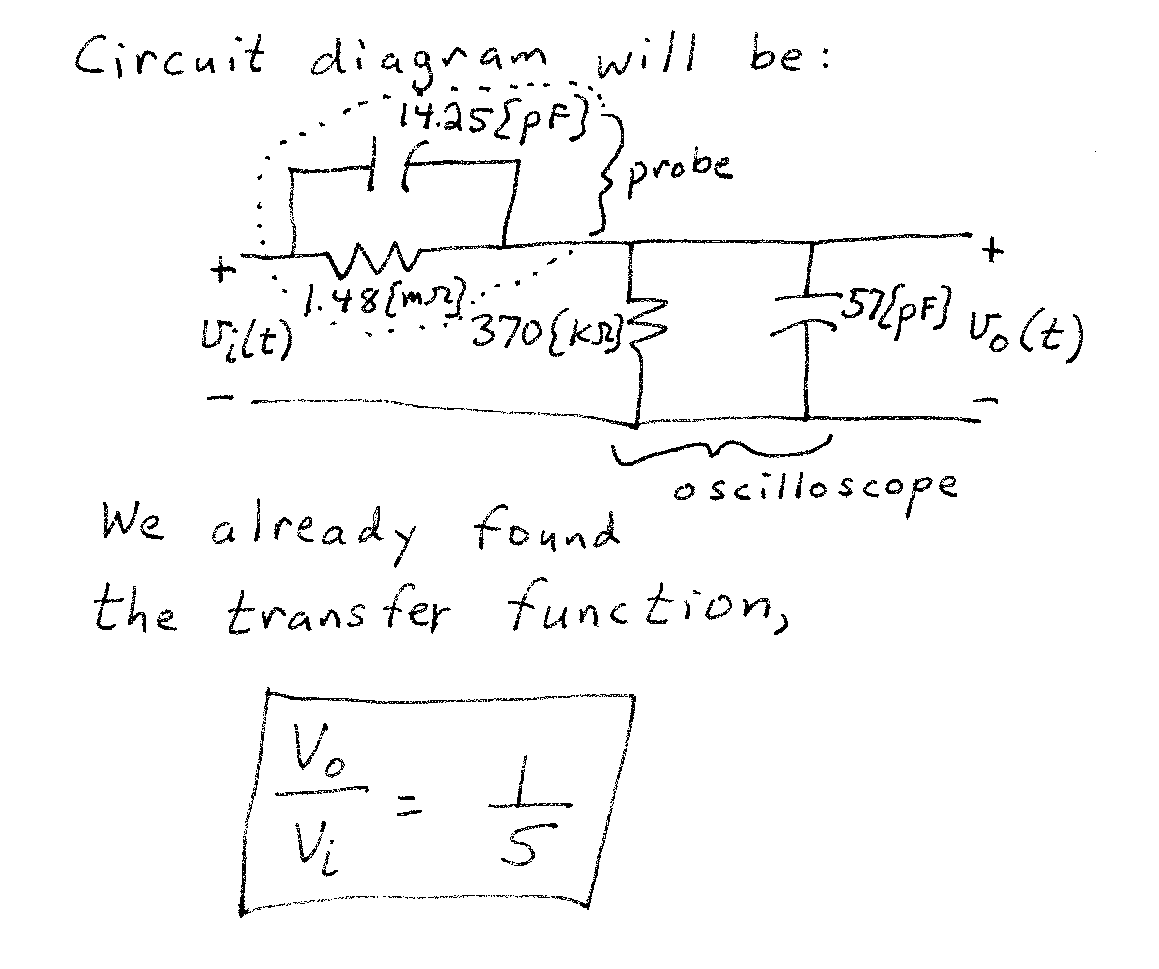 Circuit diagram will be:
14.25[pF]
probe
+
1.48[mΩ]
370[kΩ]
57[pF]
+
vi(t)
vo(t)
-
-
oscilloscope
We already found
the transfer function,
Vo/Vi = 1/5